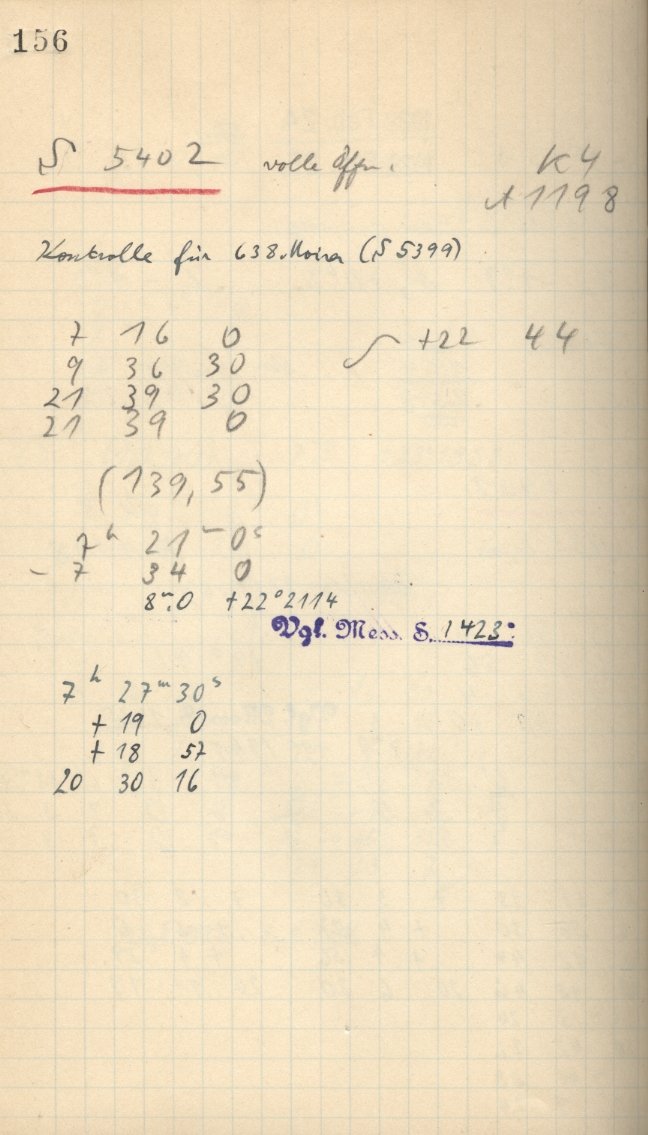 156
S 5402 volle Öffn. K 4
A 1198
Kontrolle für 638. Moira (S 5399)
7 16 0 +22 44
9 36 30
21 39 30
21 39 0
(139, 55)
7h 21m 0s
- 7 34 0
8m.0 +22°2114
Vgl. Mess. S. 1423
7h 27m 30s
+ 19 0
+ 18 57
20 30 16